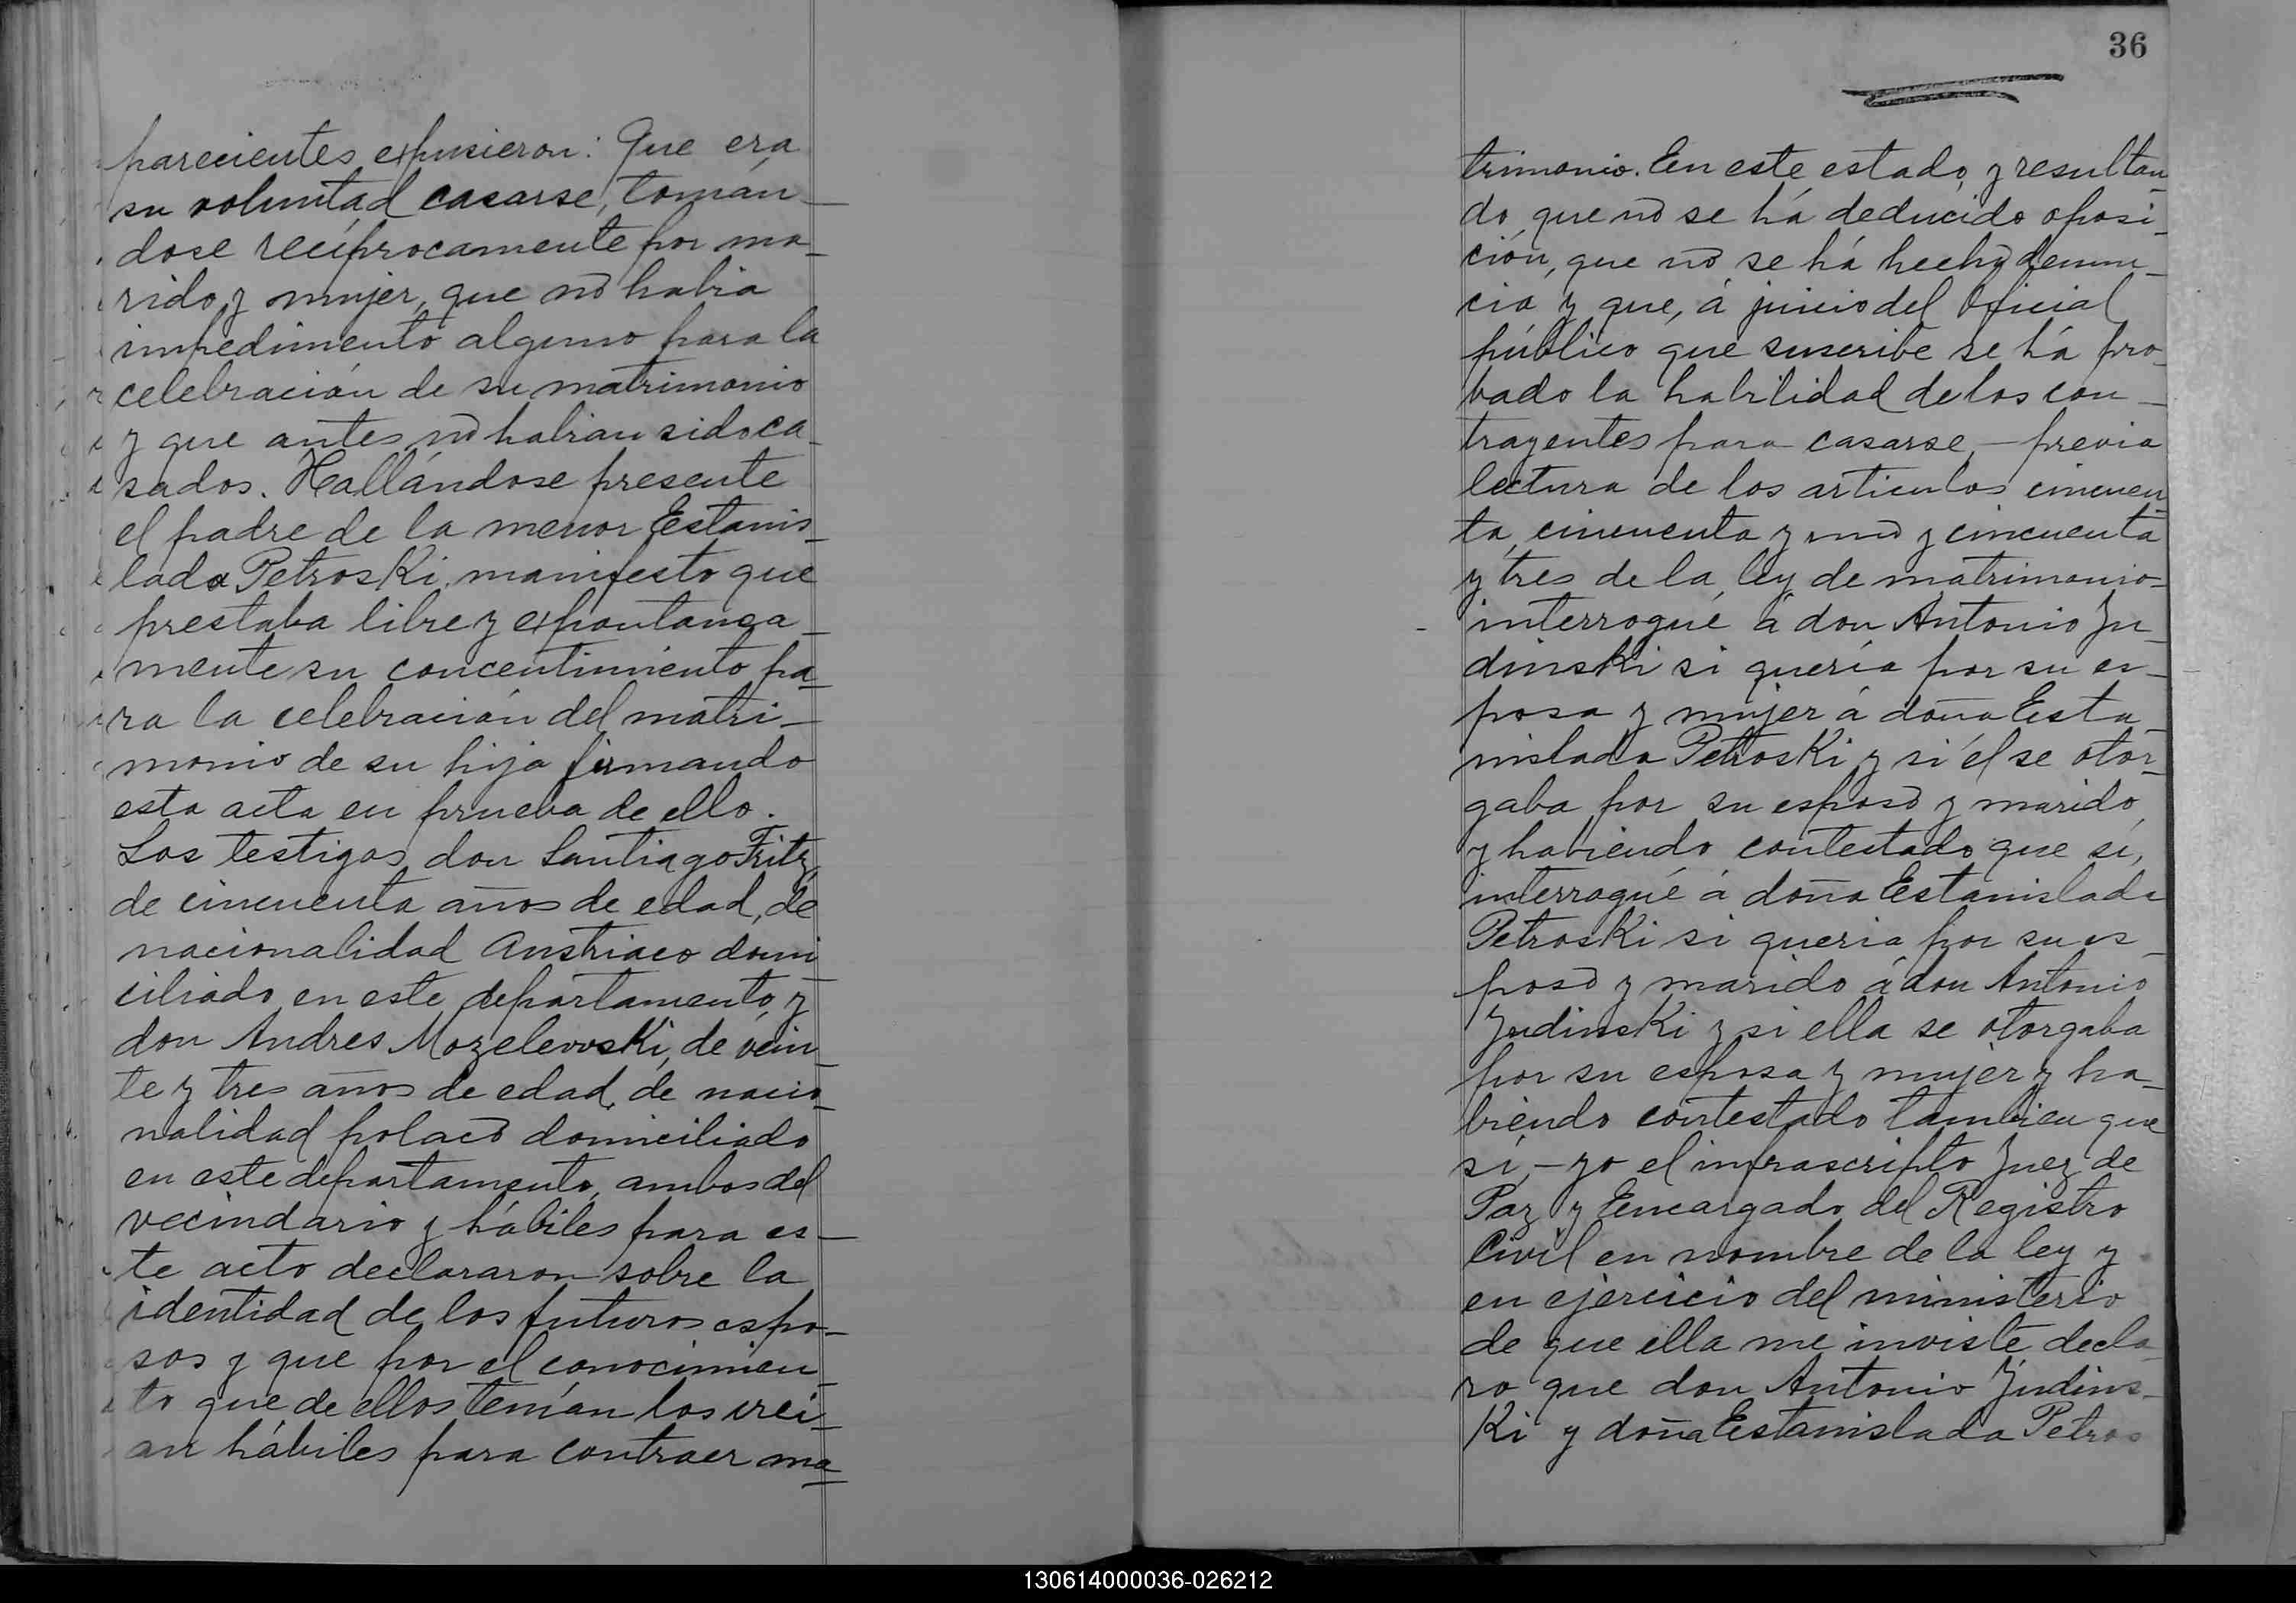 parecientes expusieron: Que era
su voluntad casarse, tomán-
dose recíprocamente por ma-
rido y mujer, que no habia
impedimento alguno para la
celebración de su matrimonio
y que antes no habian sido ca-
sados. Hallándose presente
el padre de la menor Estanis-
lada Petroski, manifesto que
prestaba libre y expontanea-
mente su concentimiento pa-
ra la celebración del matri-
monio de su hija firmando
esta acta en prueba de ello.
Los testigos don Santiago Fritz,
de cincuenta años de edad, de
nacionalidad Austriaco domi-
ciliado en este departamento, y
don Andres Mozelevvski, de vein-
te y tres años de edad, de nacio-
nalidad polaco domiciliado
en este departamento, ambos del
vecindario y hábiles para es-
te acto declararon sobre la
identidad de los futuros espo-
sos y que por el conocimien-
to que de ellos tenían los crei-
an hábiles para contraer ma-
36
trimonio. En este estado, y resultan-
do que no se há deducido oposi-
ción, que no se há hecho denun-
cia y que, á juicio del Oficial
público que suscribe se há pro-
bado la habilidad de los con-
trayentes para casarse, - previa
lectura de los articulos cincuen-
ta, cincuenta y uno y cincuenta
y tres de la ley de matrimonio-
interrogué á don Antonio Ju-
dinski si quería por su es-
posa y mujer á doña Esta-
nislada Petroski y si él se otor-
gaba por su esposo y marido,
y habiendo contestado que sí,
interrogué á doña Estanislada
Petroski si queria por su es-
poso y marido á don Antonio
Judinski y si ella se otorgaba
por su esposa y mujer y ha-
biendo contestado tambien que
sí, - yo el infrascripto Juez de
Paz y Encargado del Registro
Civil en nombre de la ley y
en ejercicio del ministerio
de que ella me inviste decla-
ro que don Antonio Judins-
Ki y doña Estanislada Petros
130614000036-026212